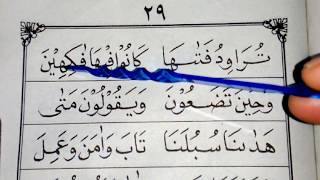 ٢٩
تُرَاوِدُ فَتٰىهَا كَانُوْا فِيْهَا فٰكِهِيْنَ
وَحِيْنَ تَضَعُوْنَ وَيَقُوْلُوْنَ مَتٰى
هَدٰىنَا سُبُلَنَا تَابَ وَاٰمَنَ وَعَمِلَ